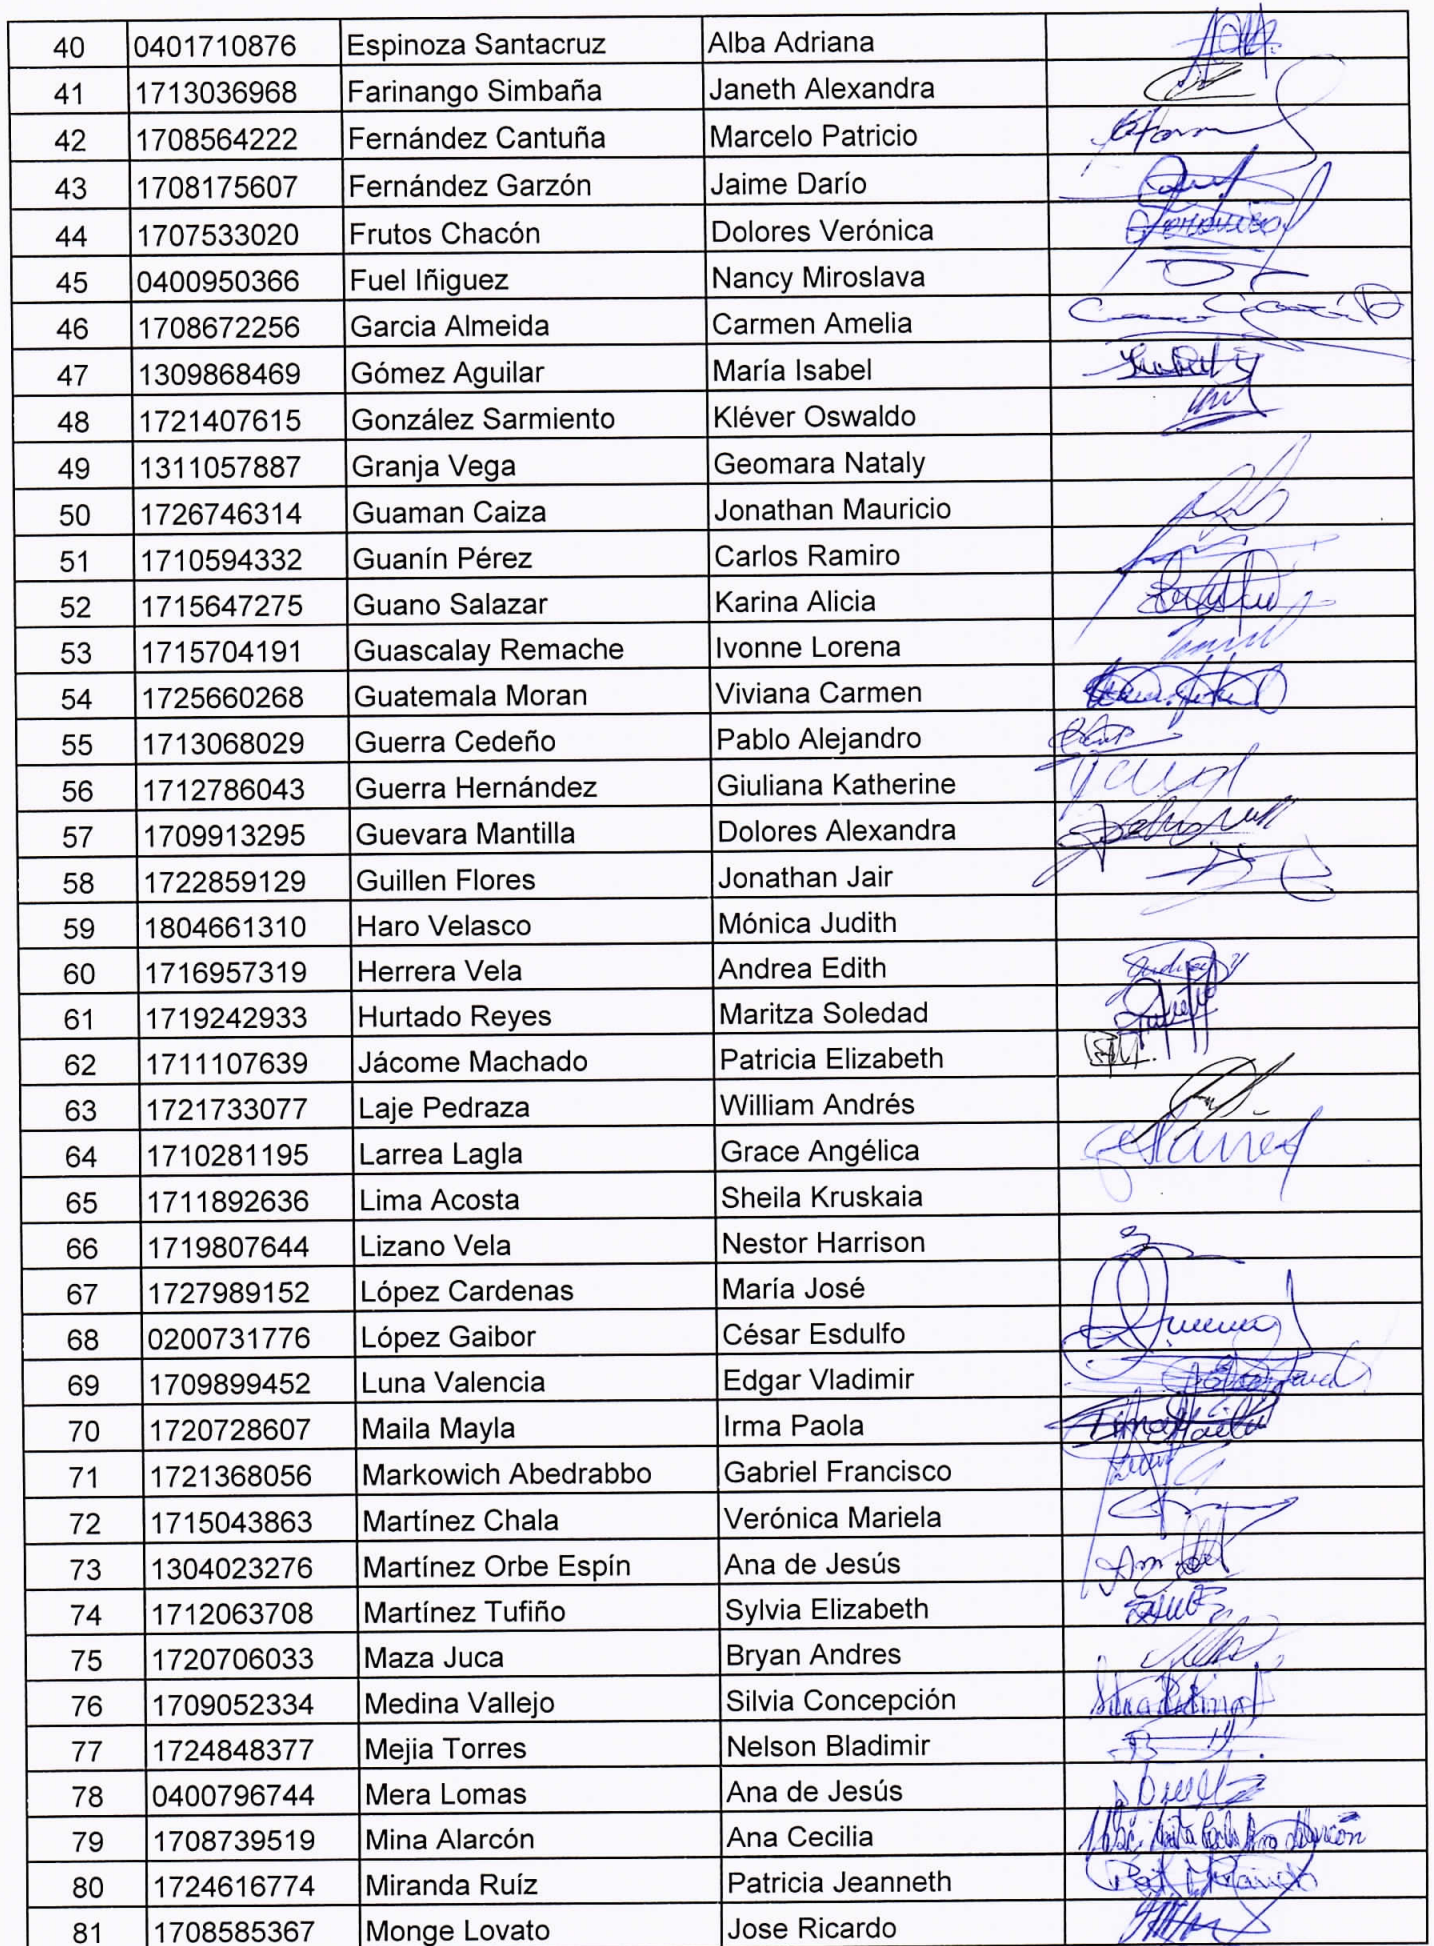 40 0401710876 Espinoza Santacruz Alba Adriana
41 1713036968 Farinango Simbaña Janeth Alexandra
42 1708564222 Fernández Cantuña Marcelo Patricio
43 1708175607 Fernández Garzón Jaime Darío
44 1707533020 Frutos Chacón Dolores Verónica
45 0400950366 Fuel Iñiguez Nancy Miroslava
46 1708672256 Garcia Almeida Carmen Amelia
47 1309868469 Gómez Aguilar María Isabel
48 1721407615 González Sarmiento Kléver Oswaldo
49 1311057887 Granja Vega Geomara Nataly
50 1726746314 Guaman Caiza Jonathan Mauricio
51 1710594332 Guanín Pérez Carlos Ramiro
52 1715647275 Guano Salazar Karina Alicia
53 1715704191 Guascalay Remache Ivonne Lorena
54 1725660268 Guatemala Moran Viviana Carmen
55 1713068029 Guerra Cedeño Pablo Alejandro
56 1712786043 Guerra Hernández Giuliana Katherine
57 1709913295 Guevara Mantilla Dolores Alexandra
58 1722859129 Guillen Flores Jonathan Jair
59 1804661310 Haro Velasco Mónica Judith
60 1716957319 Herrera Vela Andrea Edith
61 1719242933 Hurtado Reyes Maritza Soledad
62 1711107639 Jácome Machado Patricia Elizabeth
63 1721733077 Laje Pedraza William Andrés
64 1710281195 Larrea Lagla Grace Angélica
65 1711892636 Lima Acosta Sheila Kruskaia
66 1719807644 Lizano Vela Nestor Harrison
67 1727989152 López Cardenas María José
68 0200731776 López Gaibor César Esdulfo
69 1709899452 Luna Valencia Edgar Vladimir
70 1720728607 Maila Mayla Irma Paola
71 1721368056 Markowich Abedrabbo Gabriel Francisco
72 1715043863 Martínez Chala Verónica Mariela
73 1304023276 Martínez Orbe Espín Ana de Jesús
74 1712063708 Martínez Tufiño Sylvia Elizabeth
75 1720706033 Maza Juca Bryan Andres
76 1709052334 Medina Vallejo Silvia Concepción
77 1724848377 Mejia Torres Nelson Bladimir
78 0400796744 Mera Lomas Ana de Jesús
79 1708739519 Mina Alarcón Ana Cecilia
80 1724616774 Miranda Ruíz Patricia Jeanneth
81 1708585367 Monge Lovato Jose Ricardo